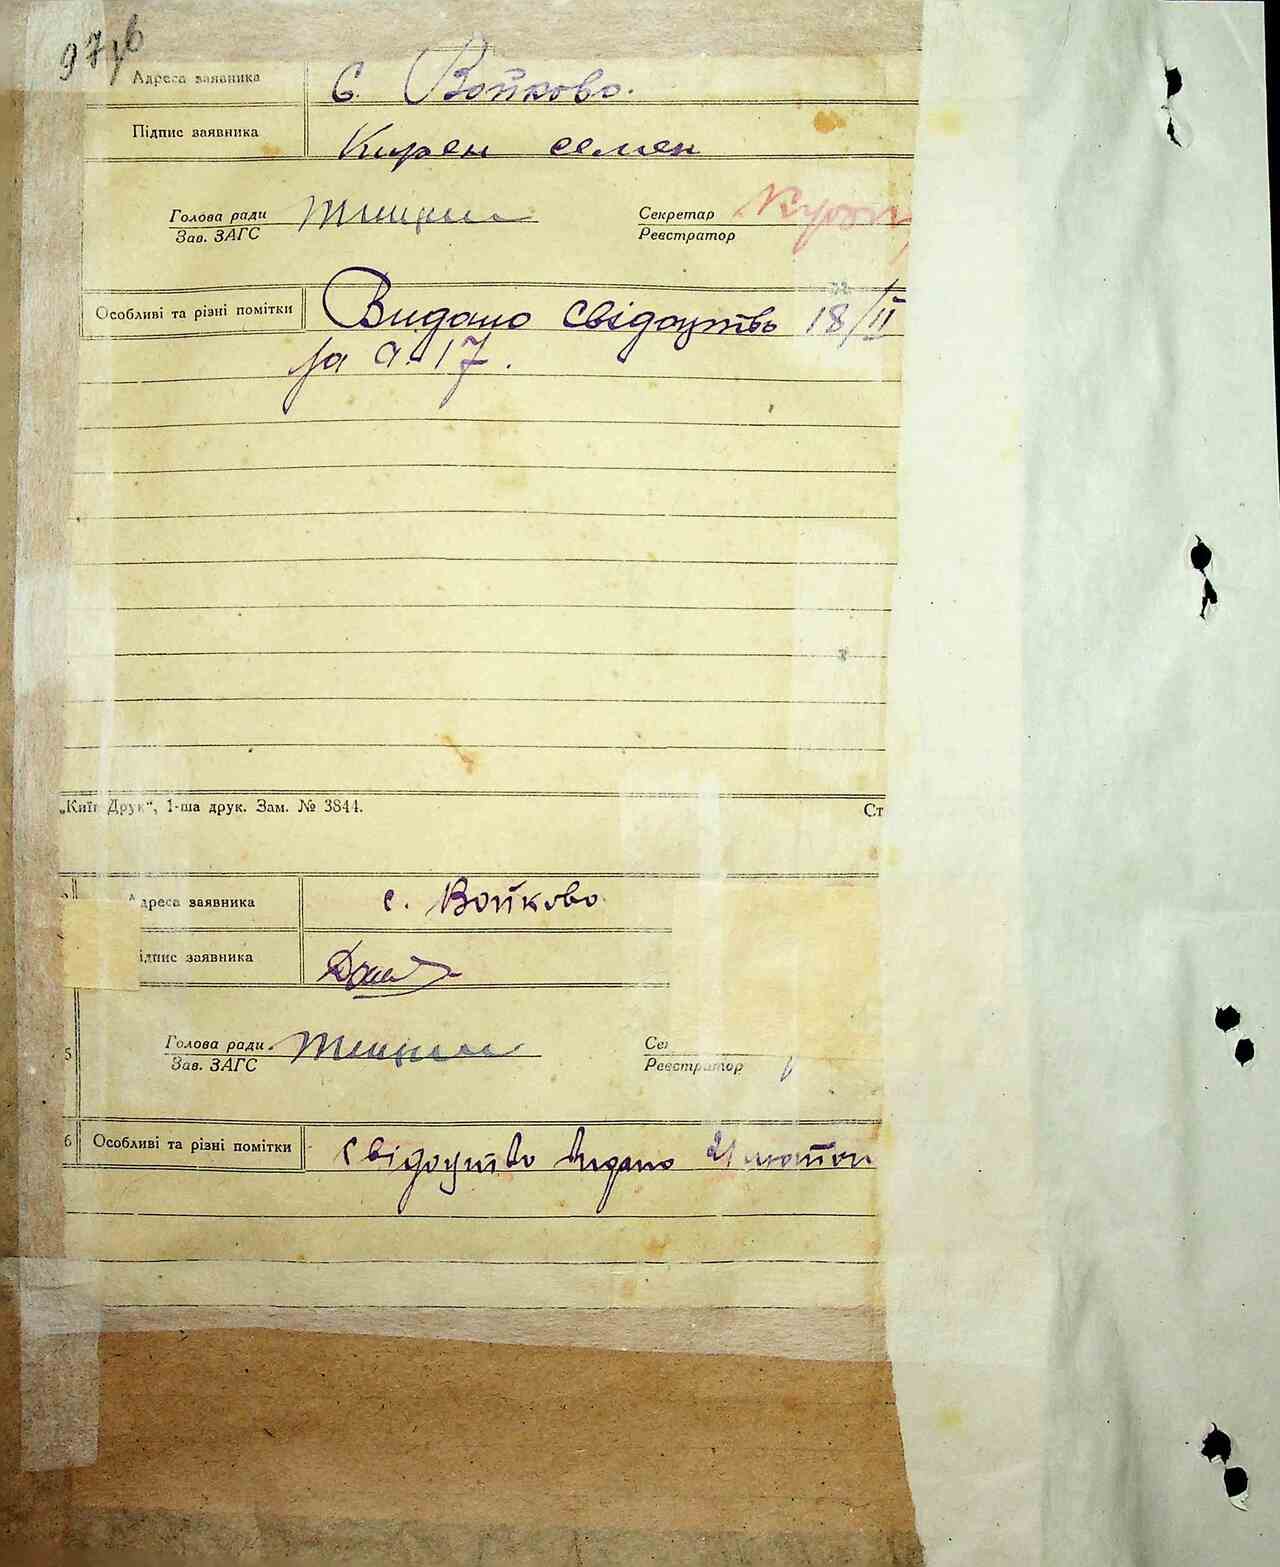 97зв
Адреса заявника С. Войково.
Підпис заявника Кирен семен
Голова ради Секретар
Зав. ЗАГС Реєстратор
Особливі та різні помітки Видано свідоцтво 18/II
за а. 17.
„Київ Друк“, 1-ша друк. Зам. № 3844. Ст
Адреса заявника с. Войково
ідпис заявника
5 Голова ради Се
Зав. ЗАГС Реєстратор
6 Особливі та різні помітки Свідоцтво видано 21 лютого